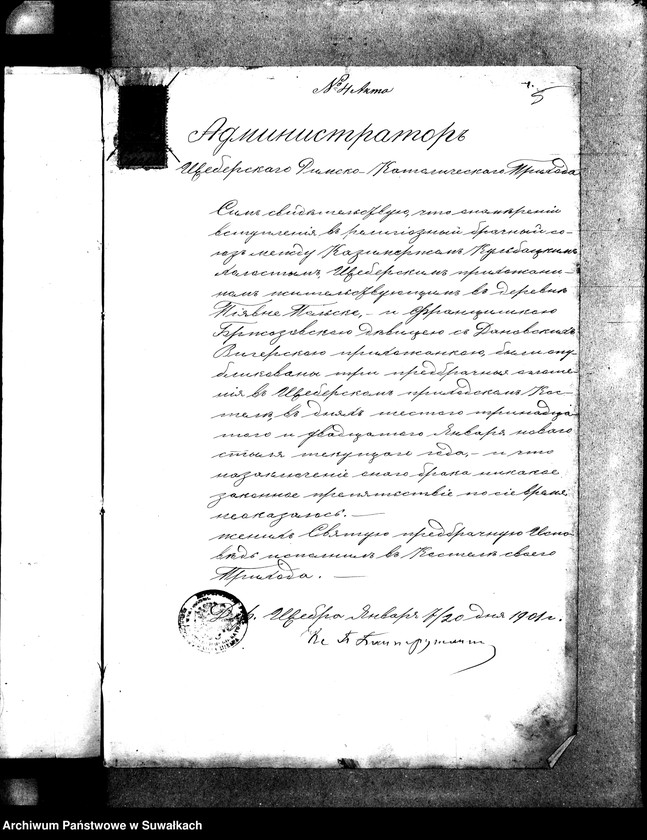 № 4 Акта
5
Администраторъ
Щеберскаго Римско-Католическаго Прихода
Симъ свидѣтельствую, что о намѣреніи
вступленія въ религіозный брачный со-
юзъ между Казимержомъ Кульбацкимъ
холостымъ, Щеберскимъ прихожани-
номъ жительствующимъ въ деревнѣ
Піявне Польске, - и Францишкою
Бржозовскою дѣвицею съ Дановскихъ
Вигерскою прихожанкою, были опу
бликованы три предбрачныя оглаше
нія въ Щеберскомъ приходскомъ Кос-
телѣ, въ дняхъ шестого тринадца
того и двадцатого Января новаго
стыля текущаго года, - и что
на заключеніе онаго брака никакое
законное препятствіе по сіе время
не оказалось. -
женихъ Святую предбрачную Испо
вѣдь исполнилъ въ Костелѣ своего
Прихода. -
Щебра Января 7/20 дня 1901 г.
Кс
Archiwum Państwowe w Suwałkach